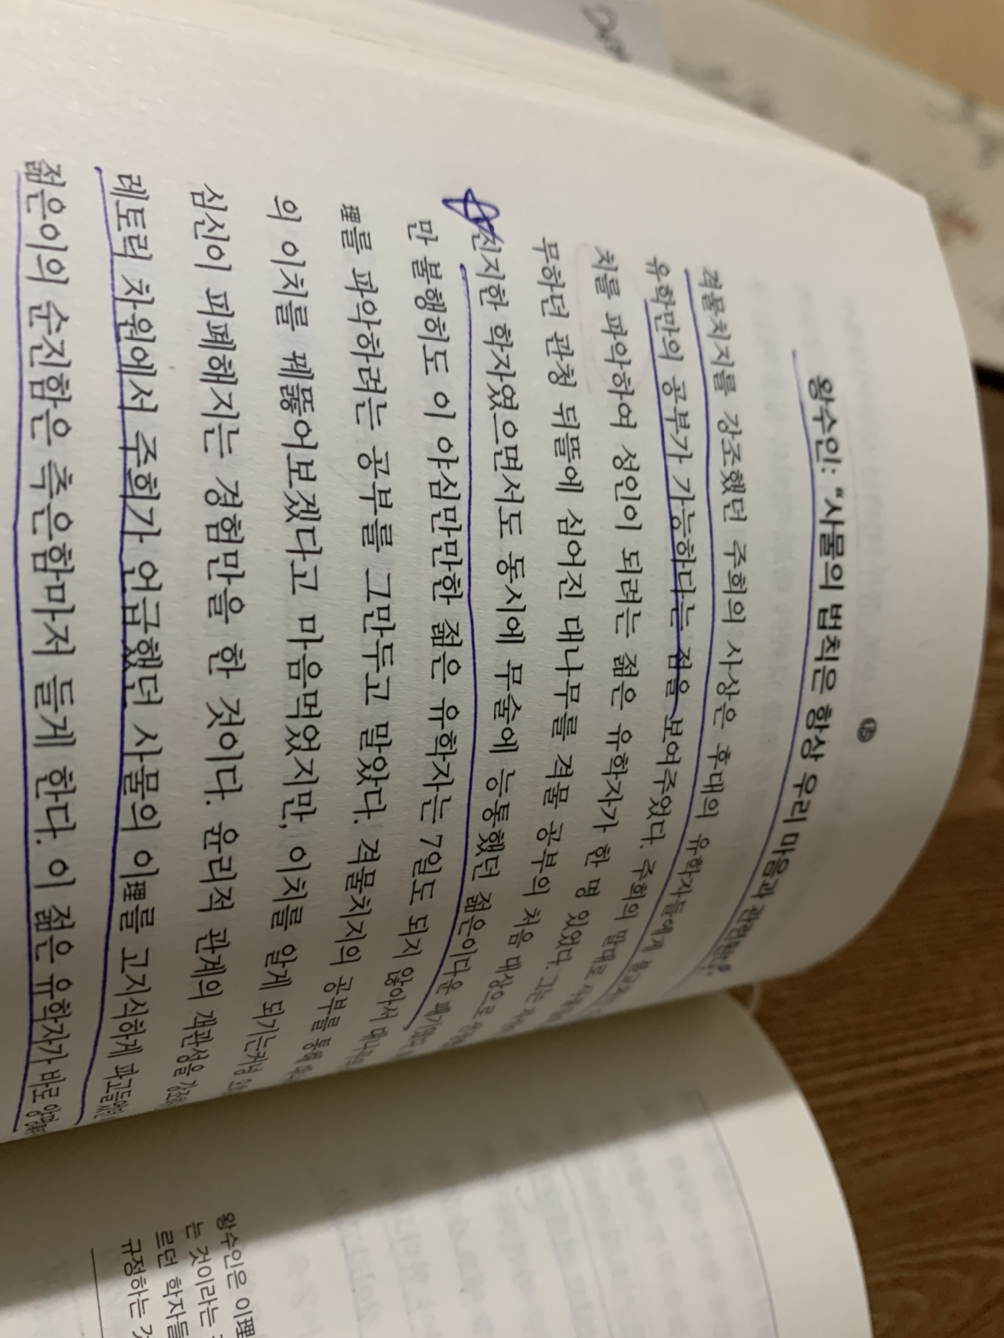 ⑮
왕수인: “사물의 법칙은 항상 우리 마음과 관련된다.”
격물치지를 강조했던 주희의 사상은 후대의 유학자들에게
유학만의 공부가 가능하다는 점을 보여주었다. 주희의 말대로
치를 파악하여 성인이 되려는 젊은 유학자가 한 명 있었다. 그는
무하던 관청 뒤뜰에 심어진 대나무를 격물 공부의 처음 대상으로
진지한 학자였으면서도 동시에 무술에 능통했던 젊은이다운
만 불행히도 이 야심만만한 젊은 유학자는 7일도 되지 않아서
理를 파악하려는 공부를 그만두고 말았다. 격물치지의 공부를 통해
의 이치를 꿰뚫어보겠다고 마음먹었지만, 이치를 알게 되기는커녕
심신이 피폐해지는 경험만을 한 것이다. 윤리적 관계의 객관성을
레토릭 차원에서 주희가 언급했던 사물의 이理를 고지식하게
젊은이의 순진함은 측은함마저 들게 한다. 이 젊은 유학자가 바로
왕수인은 이理
는 것이라는
르던 학자들
규정하는